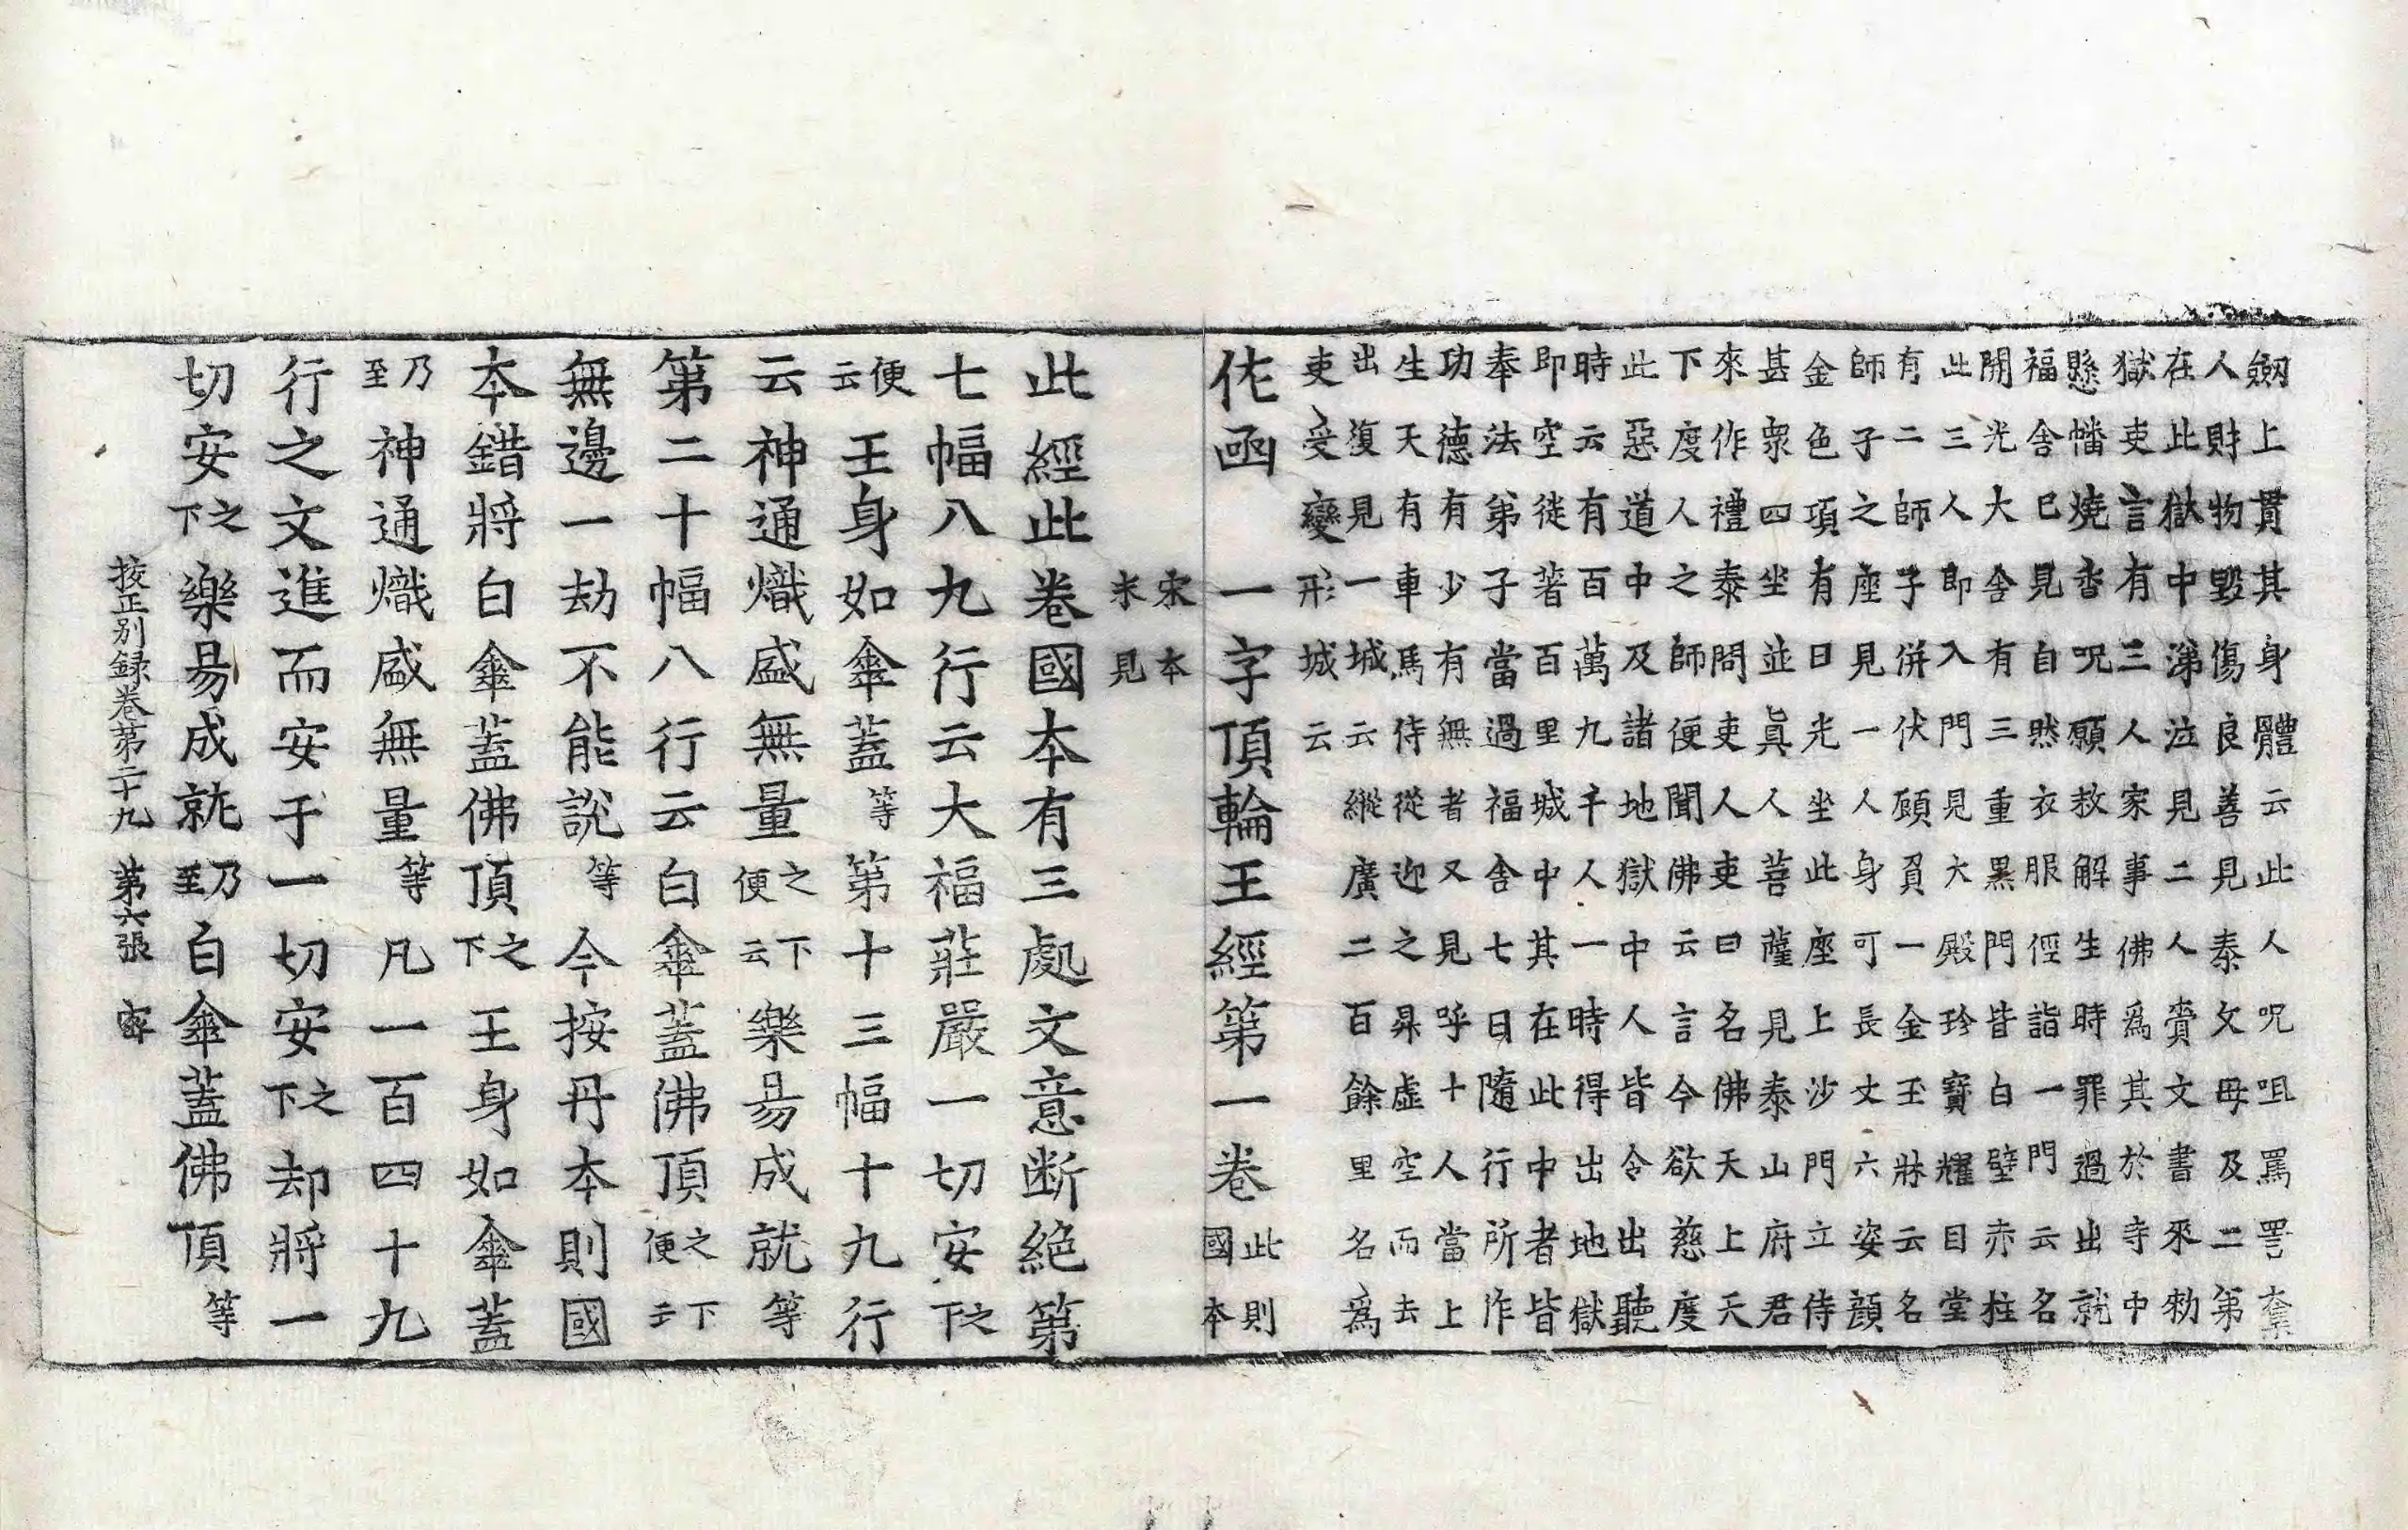 劒上貫其身體云此人呪咀罵詈奪
人財物毀傷良善見泰父母及二弟
在此獄中涕泣見二人賫文書來勑
獄吏言有三人家事佛爲其於寺中
懸幡燒香呪願救解生時罪過出就
福舍巳見自然衣服徑詣一門云名
開光大舍有三重黑門皆白壁赤柱
此三人即入門見大殿珎寶耀目堂
有二師子併伏顧負一金玉牀云名
師子之座見一人身可長丈六姿顔
金色項有日光坐此座上沙門立侍
甚衆四坐並眞人菩薩見泰山府君
來作禮泰問吏人吏曰名佛天上天
下度人之師便聞佛云言今欲慈度
此惡道中及諸地獄中人皆令出聽
時云有百萬九千人一時得出地獄
即空徙著百里城中其在此中者皆
奉法弟子當過福舍七日隨行所作
功德有少有無者又見呼十人當上
生天有車馬侍從迎之昇虛空而去
出復見一城云縱廣二百餘里名爲
吏受變形城云
佗函一字頂輪王經第一卷此則國本
宋本未見
此經此卷國本有三處文意断絕第
七幅八九行云大福莊嚴一切安之下
便云王身如傘蓋等第十三幅十九行
云神通熾盛無量之下便云樂昜成就等
第二十幅八行云白傘蓋佛頂之下便云
無邊一劫不能說等今按丹本則國
本錯將白傘蓋佛頂之下王身如傘蓋
乃至神通熾盛無量等凡一百四十九
行之文進而安于一切安之下却將一
切安之下樂昜成就乃至白傘蓋佛頂等
挍正別録卷第二十九 第六張 密